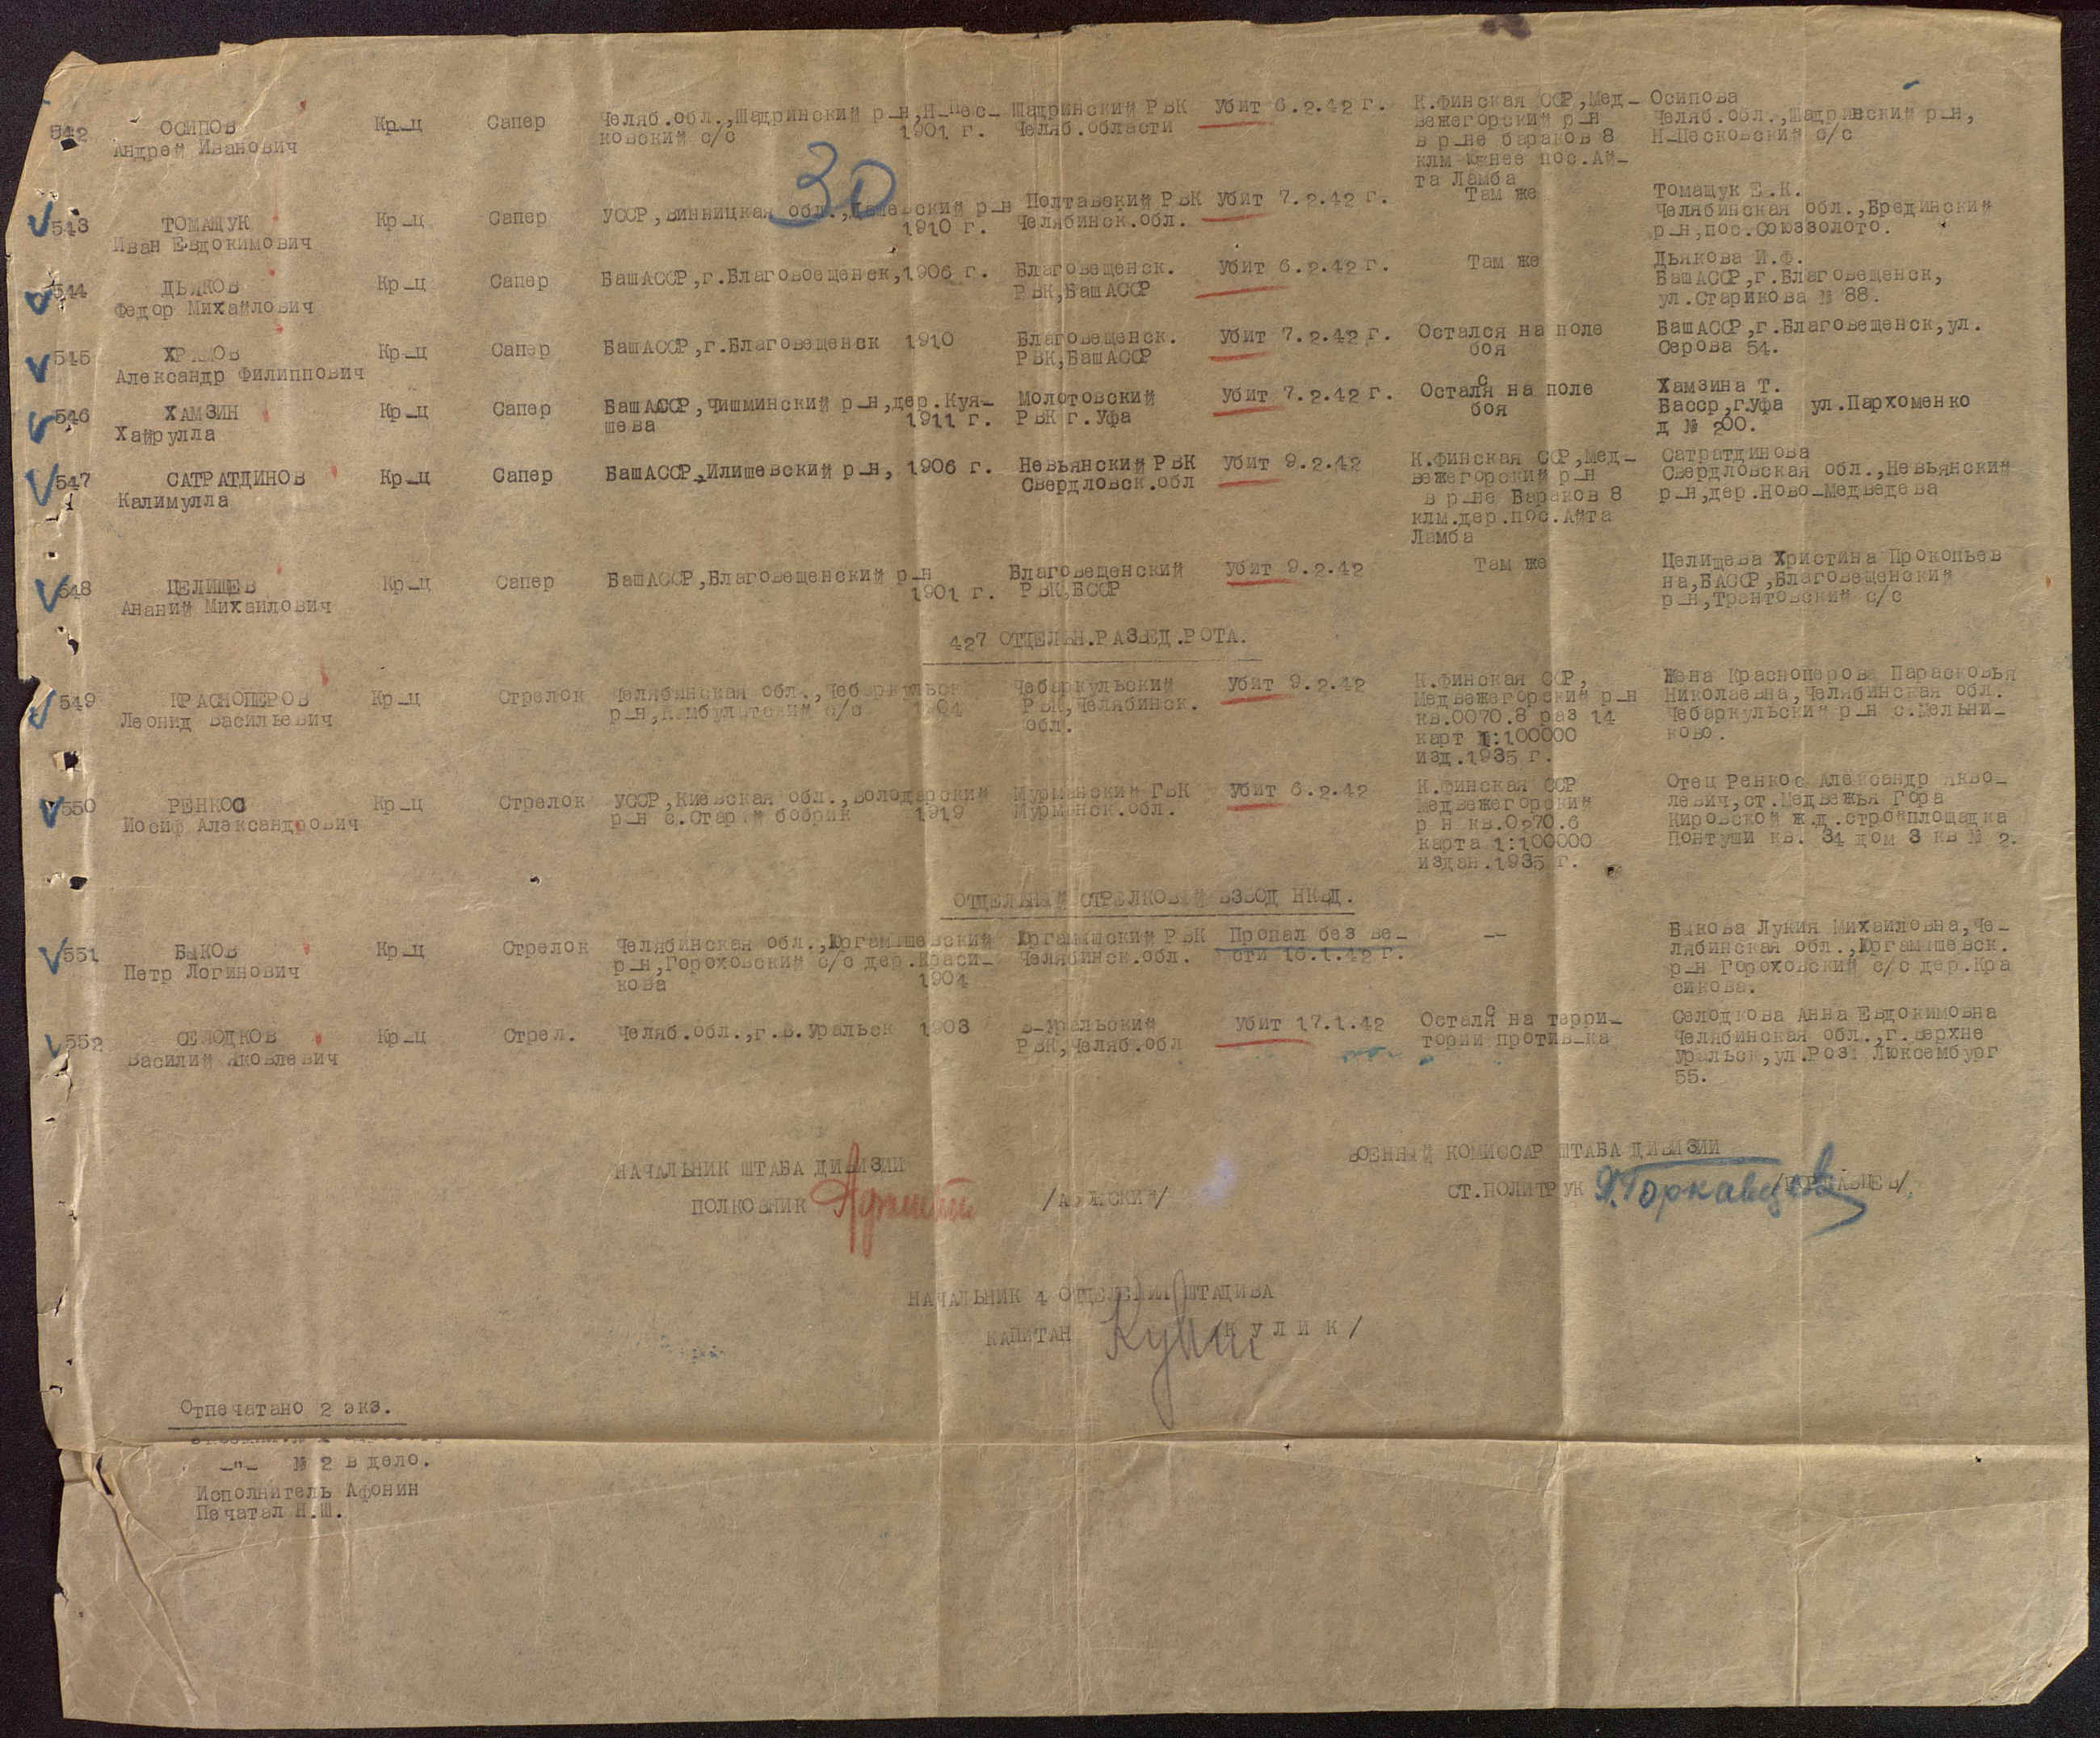 542 ОСИПОВ Кр-ц Сапер Челяб.обл.,Шадринский р-н,Н-Пес- Шадринский РВК Убит 6.2.42 г. К.Финская ССР,Мед- Осипова
Андрей Иванович ковский с/с 1901 г. Челяб.области вежегорский р-н Челяб.обл.,Шадринский р-н,
в р-не бараков 8 Н-Песковский с/с
клм южнее пос.Ай-
та Ламба
30
543 ТОМАЩУК Кр-ц Сапер УССР,Винницкая обл., р-н Полтавский РВК Убит 7.2.42 г. Там же Томащук Е.К.
Иван Евдокимович 1910 г. Челябинск.обл. Челябинская обл.,Брединский
р-н,пос.Союззолото.
544 ДЬЯКОВ Кр-ц Сапер БашАССР,г.Благовоещенск,1906 г. Благовещенск. Убит 6.2.42 г. Там же Дьякова И.Ф.
Федор Михайлович РВК,БашАССР БашАССР,г.Благовещенск,
ул.Старикова № 88.
545 Кр-ц Сапер БашАССР,г.Благовещенск 1910 Благовещенск. Убит 7.2.42 г. Остался на поле БашАССР,г.Благовещенск,ул.
Александр Филиппович РВК,БашАССР боя Серова 54.
546 ХАМЗИН Кр-ц Сапер БашАССР,Чишминский р-н,дер.Куя- Молотовский Убит 7.2.42 г. Остался на поле Хамзина Т.
Хайрулла шева 1911 г. РВК г.Уфа боя Басср,г.Уфа ул.Пархоменко
д № 200.
547 САТРАТДИНОВ Кр-ц Сапер БашАССР,Илишевский р-н, 1906 г. Невьянский РВК Убит 9.2.42 К.Финская ССР,Мед- Сатратдинова
Калимулла Свердловск.обл вежегорский р-н Свердловская обл.,Невьянский
в р-не Бараков 8 р-н,дер.Ново-Медведева
клм.дер.пос.Айта
Ламба
548 ЦЕЛИЩЕВ Кр-ц Сапер БашАССР,Благовещенский р-н Благовещенский Убит 9.2.42 Там же Целищева Христина Прокопьев
Ананий Михаилович 1901 г. РВК,БССР на,БАССР,Благовещенский
р-н,Трантовский с/с
427 ОТДЕЛЬН.РАЗВЕД.РОТА.
549 КРАСНОПЕРОВ Кр-ц Стрелок Челябинская обл.,Чебаркульск Чебаркульский Убит 9.2.42 К.Финская ССР, Жена Красноперова Парасковья
Леонид Васильевич р-н, с/с 1904 РВК,Челябинск. Медвежегорский р-н Николаевна,Челябинская обл.
обл. кв.0070.8 раз 14 Чебаркульский р-н с.Мельни-
карт 1:100000 ково.
изд.1935 г.
550 РЕНКОС Кр-ц Стрелок УССР,Киевская обл.,Володарский Мурманский ГВК Убит 6.2.42 К.Финская ССР Отец Ренкос Александр Якво-
Иосиф Александрович р-н с.Старый бобрик 1919 Мурманск.обл. Медвежегорский левич,ст.Медвежья Гора
р н кв.0270.6 Кировской ж.д.стройплощадка
карта 1:100000 Понтуши кв. 34 дом 3 кв № 2.
издан.1935 г.
ОТДЕЛЬНЫЙ СТРЕЛКОВЫЙ ВЗВОД НКВД.
551 БЫКОВ Кр-ц Стрелок Челябинская обл.,Юргамышевский Юргамышский РВК Пропал без ве- -- Быкова Лукия Михаиловна,Че-
Петр Логинович р-н,Гороховский с/с дер.Краси- Челябинск.обл. сти 16.1.42 г. лябинская обл.,Юргамышевск.
кова 1904 р-н Гороховский с/с дер.Кра
сикова.
552 СЕЛОДКОВ Кр-ц Стрел. Челяб.обл.,г.В.Уральск 1903 В-Уральский Убит 17.1.42 Остался на терри- Селодкова Анна Евдокимовна
Василий Яковлевич РВК,Челяб.обл тории против-ка Челябинская обл.,г.Верхне
Уральск,ул.Розы Люксембург
55.
НАЧАЛЬНИК ШТАБА ДИВИЗИИ ВОЕННЫЙ КОМИССАР ШТАБА ДИВИЗИИ
ПОЛКОВНИК СТ.ПОЛИТРУК Горкавцев
НАЧАЛЬНИК 4 ОТДЕЛЕНИЯ ШТАДИВА
КАПИТАН Кулик /КУЛИК/
Отпечатано 2 экз.
-"- № 2 в дело.
Исполнитель Афонин
Печатал Н.Ш.